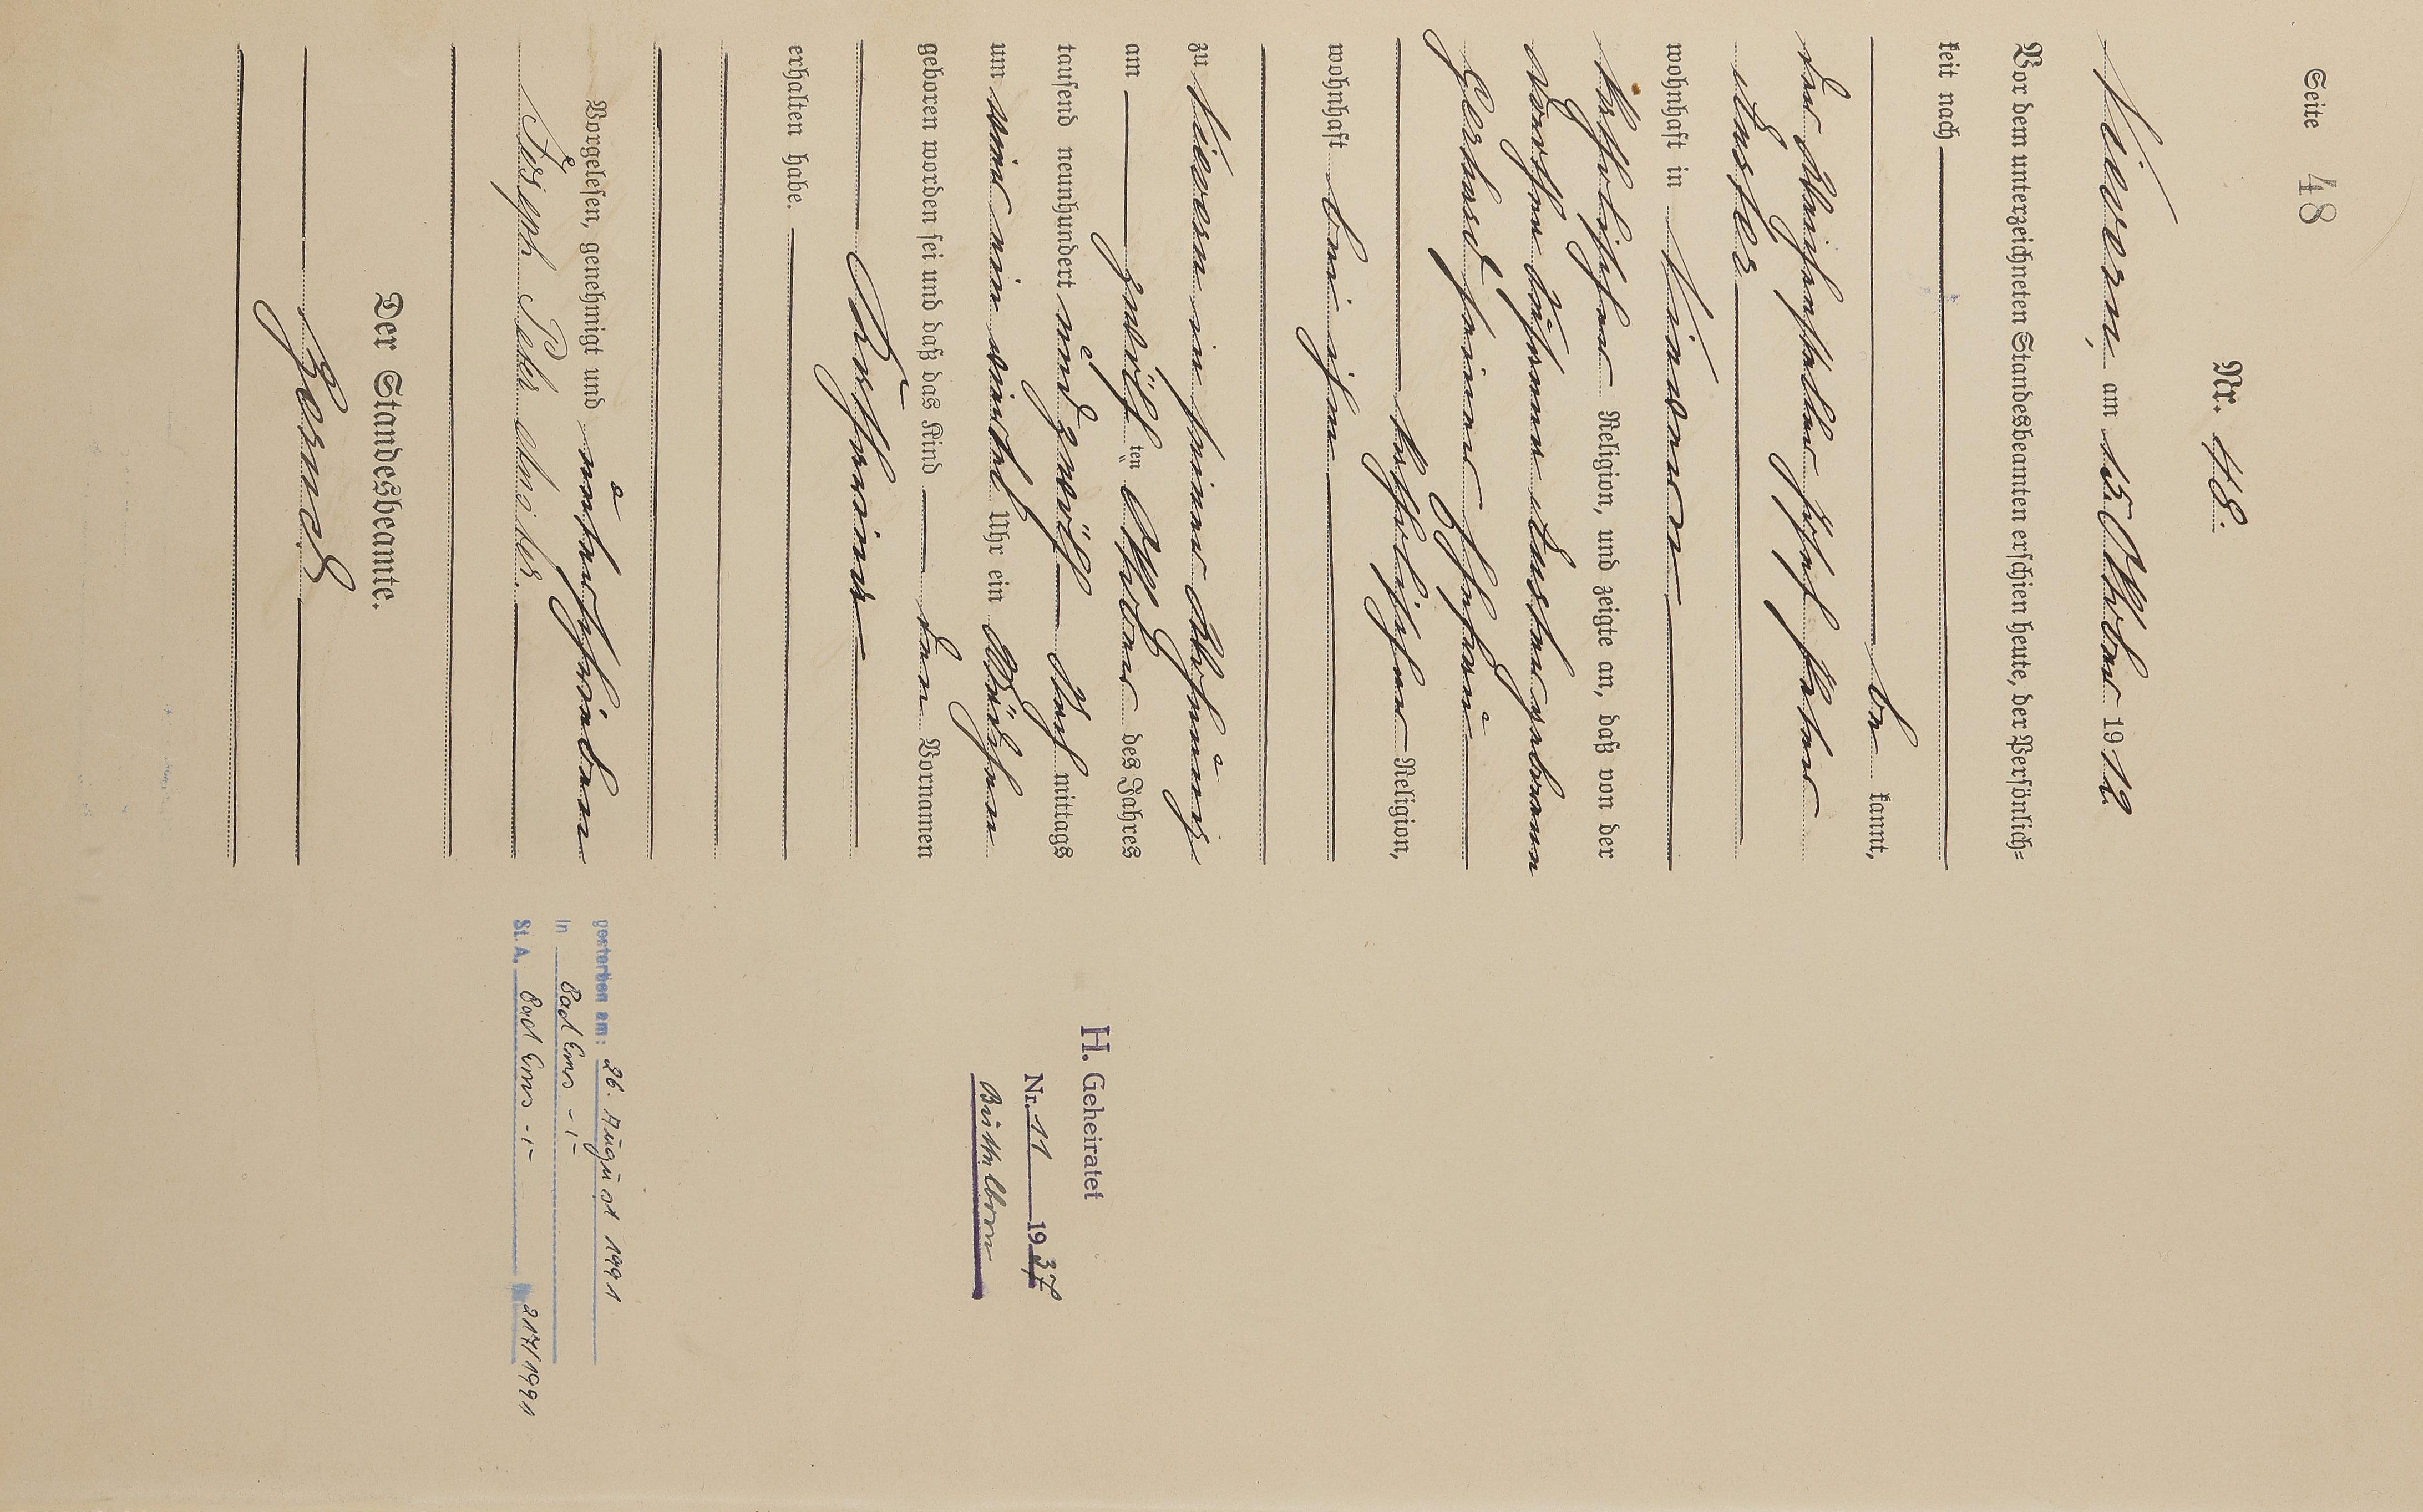 Seite 48
Nr. 48.
Nievern, am 15. Oktober 1912.
Vor dem unterzeichneten Standesbeamten erschien heute, der Persönlich=
keit nach
be kannt,
der Josef Peter
wohnhaft in Nievern
katholischer Religion, und zeigte an, daß von der
geborenen
Gerhard seiner Ehefrau
katholischer Religion,
wohnhaft bei ihm
zu Nievern in seiner Wohnung
am zwölf ten Oktober des Jahres
tausend neunhundert und zwölf Nach mittags
um ein viertel Uhr ein Mädchen
geboren worden sei und daß das Kind den Vornamen
Katharina
erhalten habe.
Vorgelesen, genehmigt und unterschrieben
Joseph Peter
Der Standesbeamte.
H. Geheiratet
Nr. 11 1937
gestorben am: 26. August 1991
in Bad Ems -1-
St. A. Bad Ems -1- 217/1991